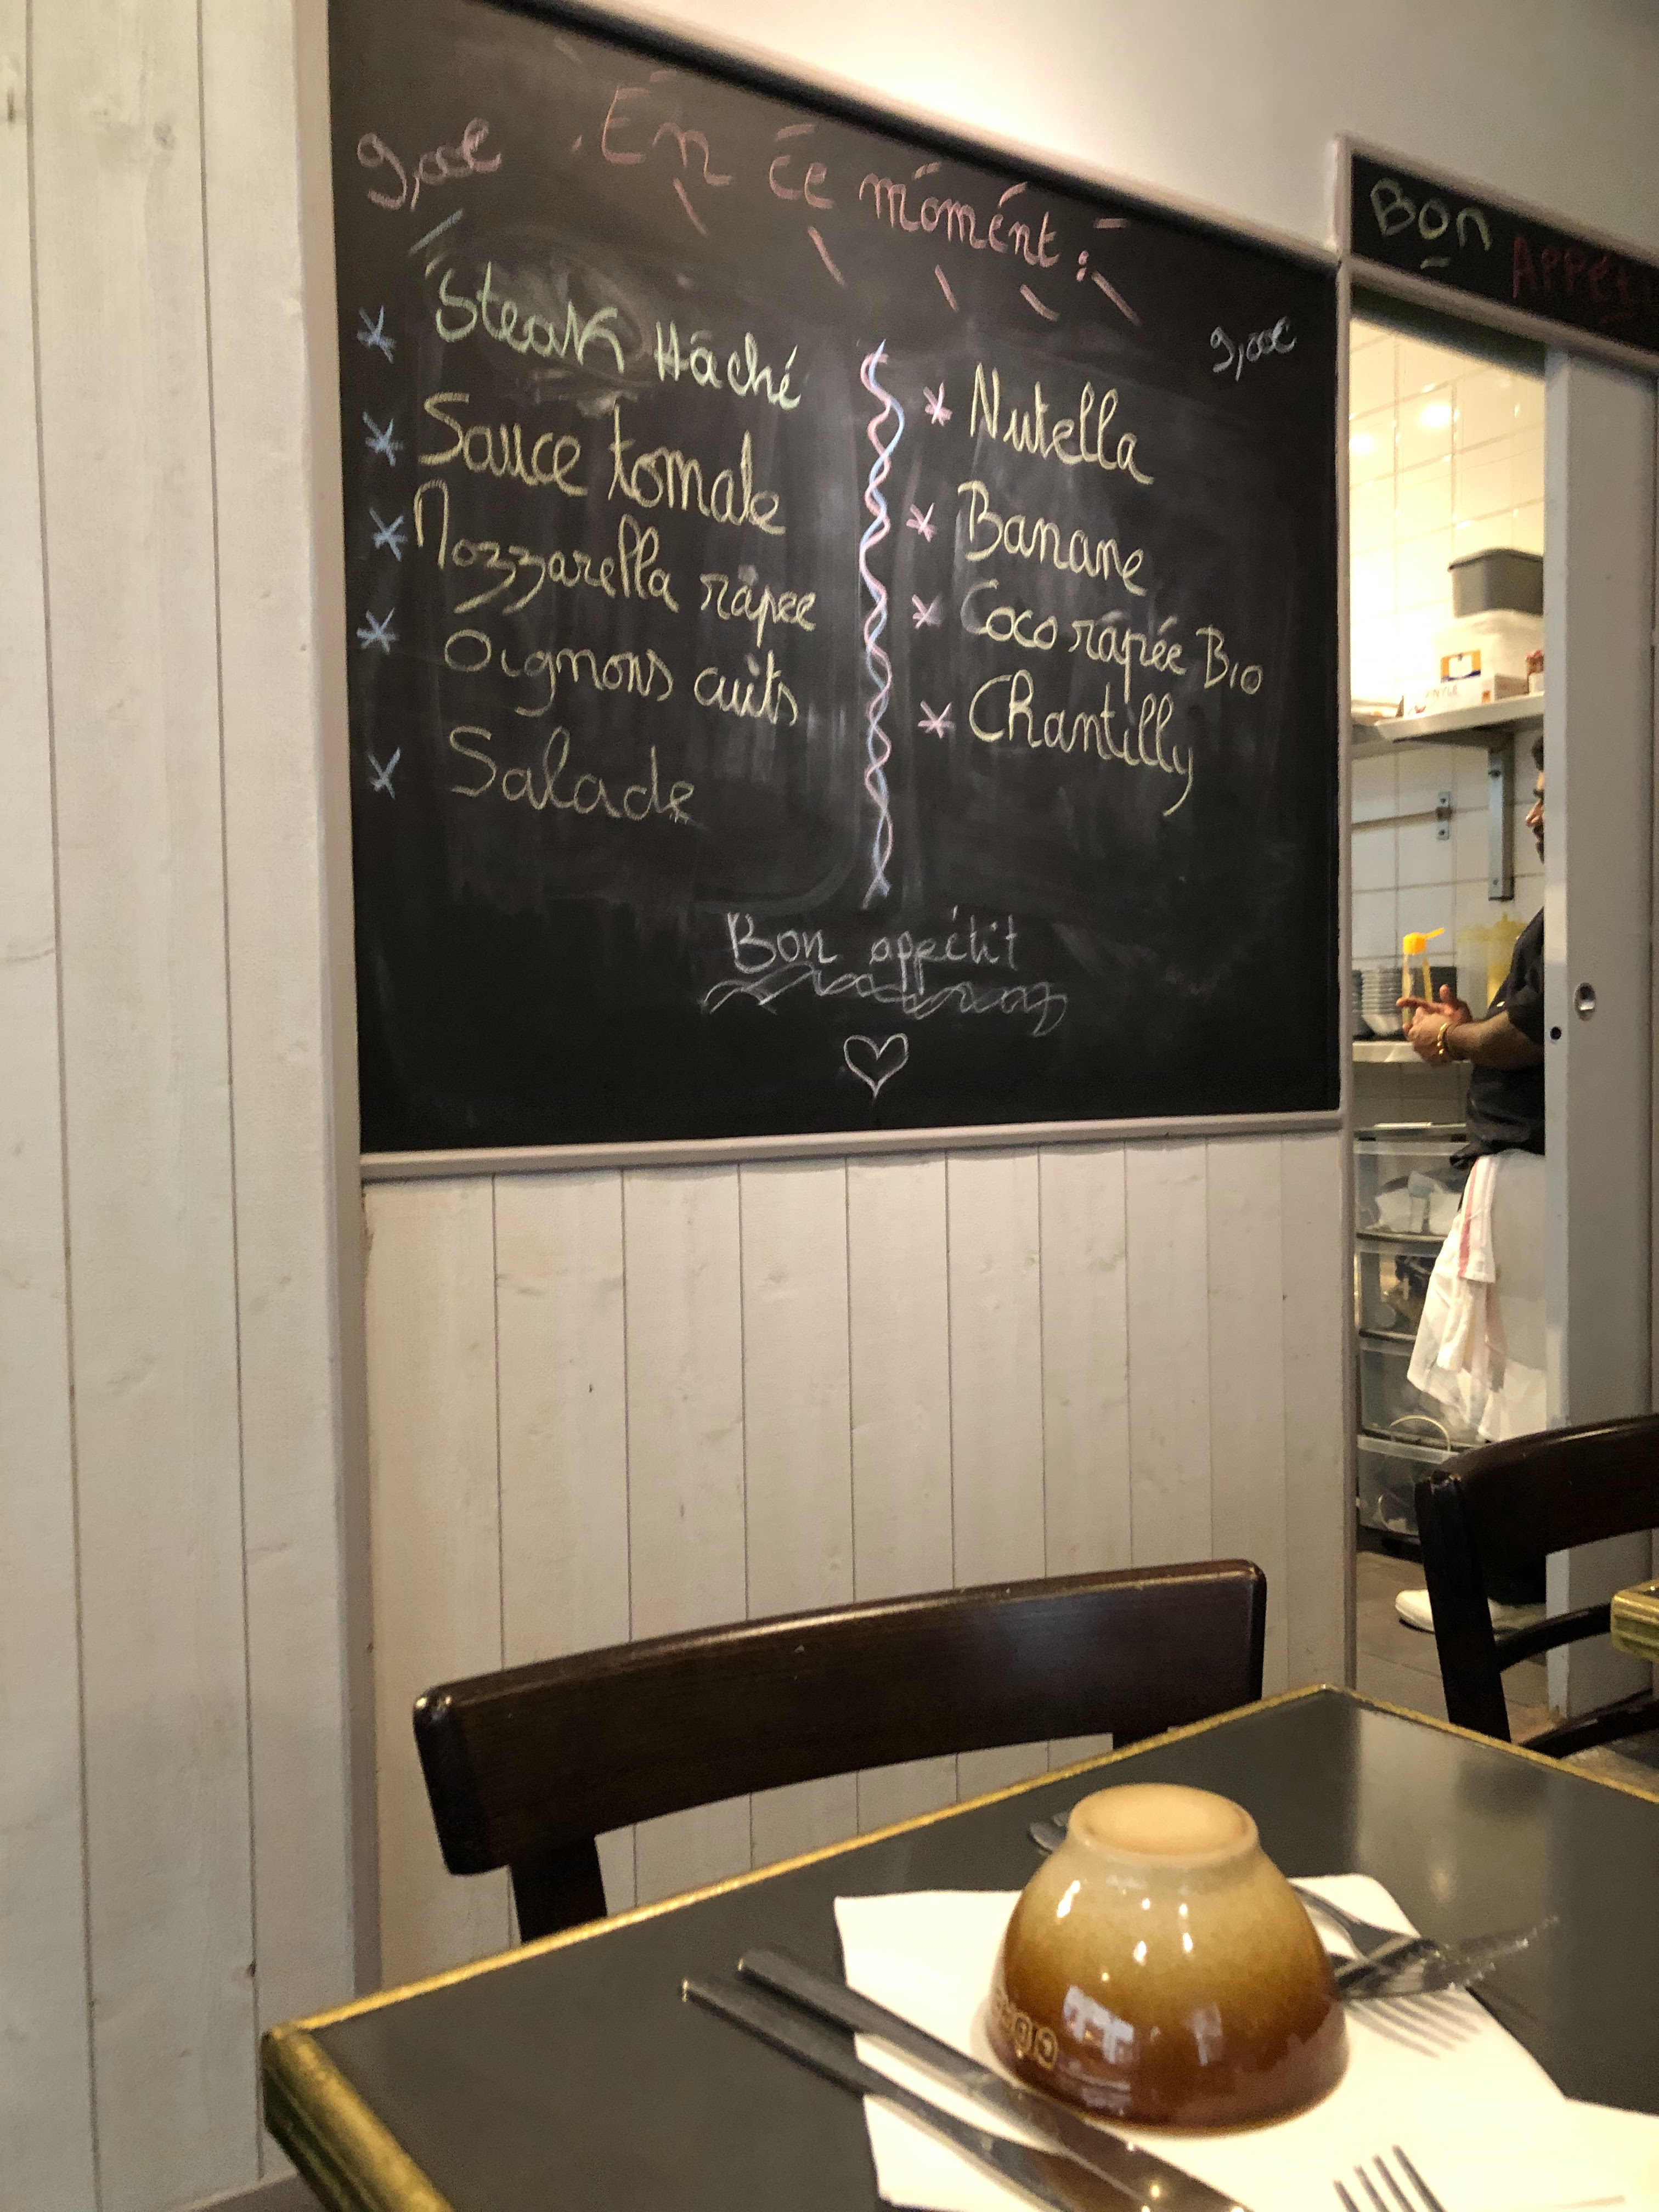 En ce moment :
9,00€
Steak Hâché
Sauce tomate
Mozzarella râpée
Oignons cuits
Salade
9,00€
Nutella
Banane
Coco râpée Bio
Chantilly
Bon appétit
Bon
Appét